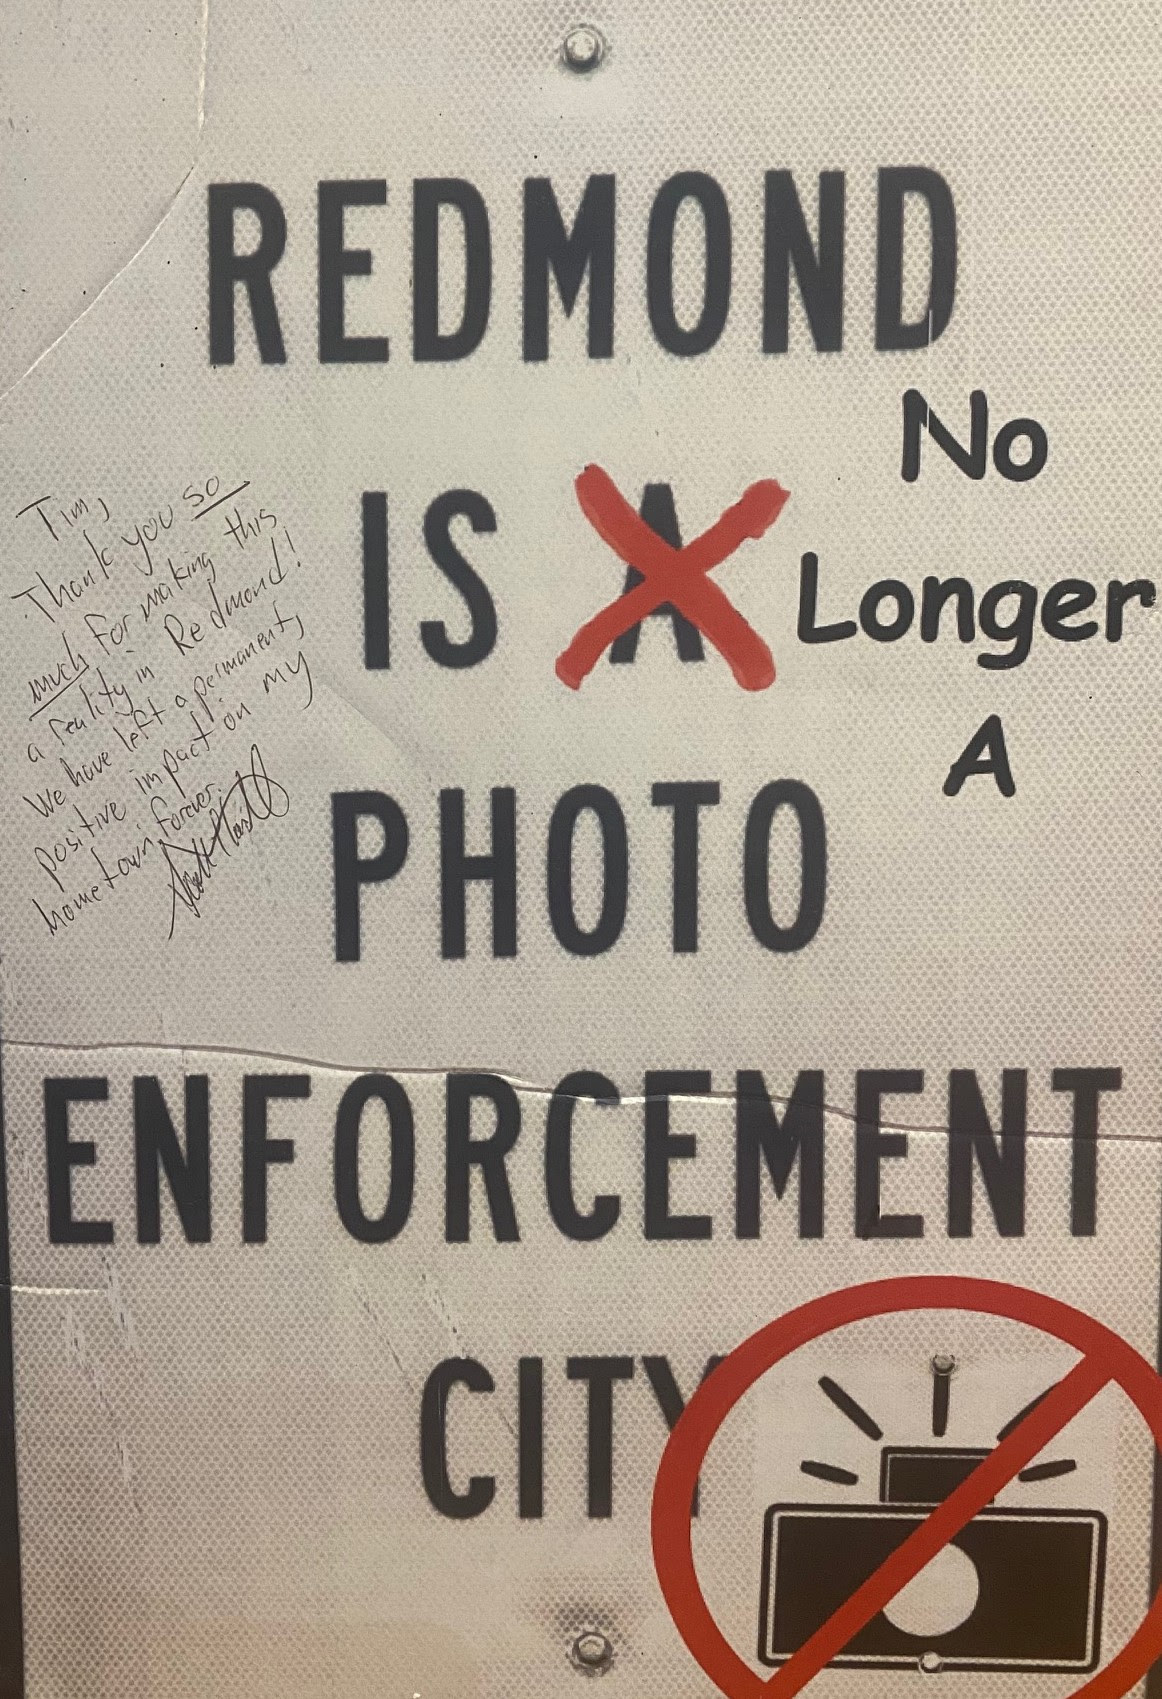 REDMOND
No
IS A
Longer
A
Tim,
Thank you so
much for making this
a reality in Redmond!
We have left a permanent,
positive impact on my
hometown forever.
PHOTO
ENFORCEMENT
CITY